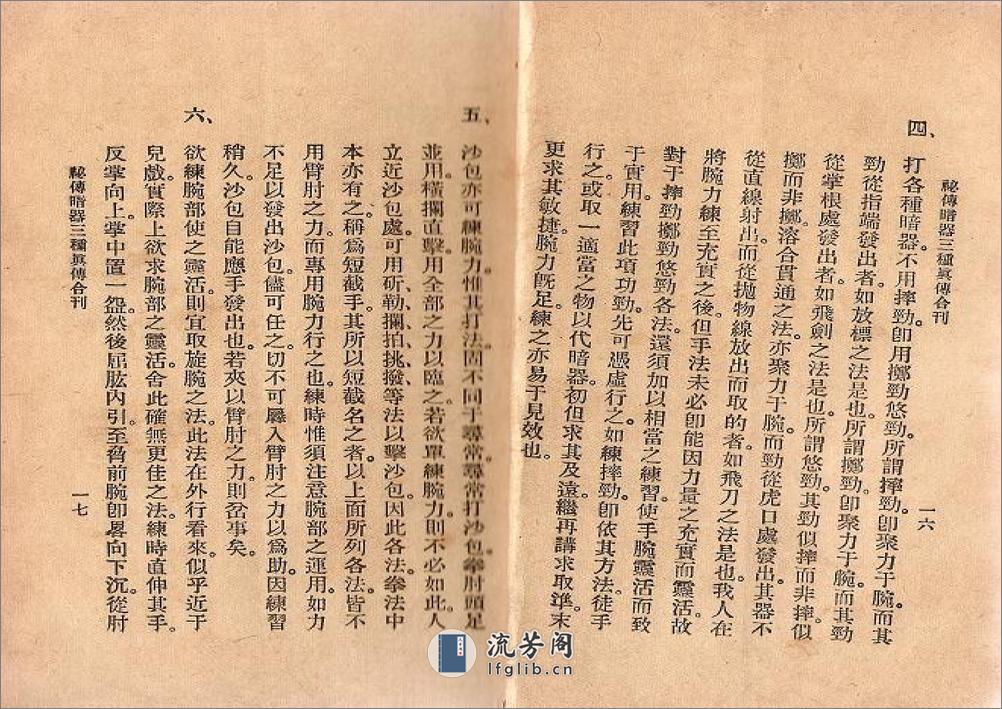 祕傳暗器三種眞傳合刊
一六
四、打各種暗器。不用摔勁。卽用擲勁悠勁。所謂摔勁。卽聚力于腕。而其
勁從指端發出者。如放標之法是也。所謂擲勁。卽聚力于腕。而其勁
從掌根處發出者。如飛劍之法是也。所謂悠勁。其勁似摔而非摔。似
擲而非擲。溶合貫通之法。亦聚力于腕。而勁從虎口處發出。其器不
從直線射出。而從拋物線放出而取的者。如飛刀之法是也。我人在
將腕力練至充實之後。但手法未必卽能因力量之充實而靈活。故
對于摔勁擲勁悠勁各法。還須加以相當之練習。使手腕靈活而致
于實用。練習此項功勁。先可憑虛行之。如練摔勁。卽依其方法。徒手
行之。或取一適當之物以代暗器。初但求其及遠。繼再講求取準。末
更求其敏捷。腕力旣足。練之亦易于見效也。
五、沙包亦可練腕力。惟其打法。固不同于尋常。尋常打沙包。拳肘頭足
並用。橫攔直擊。用全部之力以臨之。若欲單練腕力。則不必如此。人
立近沙包處。可用斫、勒、攔、拍、挑、撥、等法以擊沙包。因此各法。拳法中
本亦有之。稱爲短截手。其所以短截名之者。以上面所列各法。皆不
用臂肘之力。而專用腕力行之也。練時惟須注意腕部之運用。如力
不足以發出沙包。儘可任之。切不可羼入臂肘之力以爲助。因練習
稍久。沙包自能應手發出也。若夾以臂肘之力。則岔事矣。
六、欲練腕部使之靈活。則宜取旋腕之法。此法在外行看來。似乎近于
兒戲。實際上欲求腕部之靈活。舍此確無更佳之法。練時直伸其手。
反掌向上。掌中置一盌。然後屈肱內引。至脅前腕卽畧向下沉。從肘
祕傳暗器三種眞傳合刊
一七
流芳阁
lfglib.cn